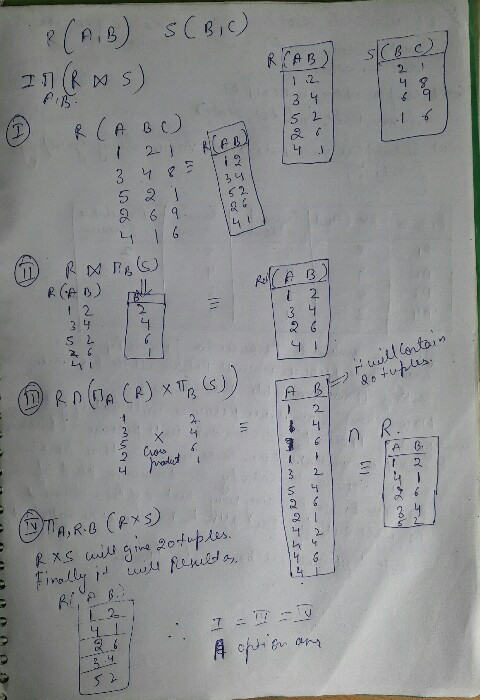 R(A,B) S(B,C)
I Π A,B. (R ⋈ S)
R (A B)
1 2
3 4
5 2
2 6
4 1
S (B C)
2 1
4 8
6 9
1 6
I
R (A B C)
1 2 1
3 4 8
5 2 1
2 6 9
4 1 6
≡
R(A B)
1 2
3 4
5 2
2 6
4 1
II R ⋈ ΠB(S)
R(A B)
1 2
3 4
5 2
2 6
4 1
B
2
4
6
1
≡
(A B)
1 2
3 4
2 6
4 1
III R ∩ (ΠA (R) × ΠB (S))
1 2
3 × 4
5 cross 6
2 product 1
4
≡
it will contain
20 tuples.
A B
1 2
4
6
1 1
3 2
5 4
2 6
2 1
4 2
4 4
4 6
4 1
∩ R.
≡
A B
1 2
4 1
2 6
3 4
5 2
IV ΠA,R.B (R×S)
R×S will give 20 tuples.
Finally it will result as.
A B
1 2
4 1
2 6
3 4
5 2
∴ I = III = IV
option ans